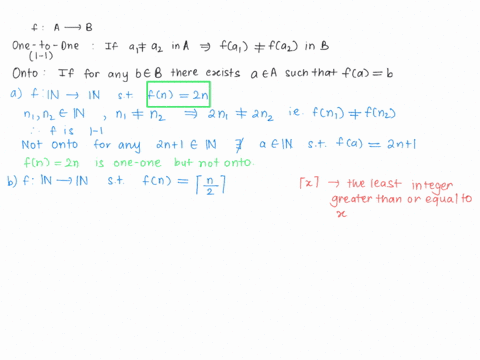 f: A → B
One-to-One : If a₁ ≠ a₂ in A ⇒ f(a₁) ≠ f(a₂) in B
(1-1)
Onto : If for any b ∈ B there exists a ∈ A such that f(a) = b
a) f: ℕ → ℕ s.t. f(n) = 2n
n₁, n₂ ∈ ℕ , n₁ ≠ n₂ ⇒ 2n₁ ≠ 2n₂ i.e. f(n₁) ≠ f(n₂)
∴ f is 1-1
Not onto for any 2n+1 ∈ ℕ ∄ a ∈ ℕ s.t. f(a) = 2n+1
f(n) = 2n is one-one but not onto.
b) f: ℕ → ℕ s.t. f(n) = ⌈n/2⌉
⌈x⌉ → the least integer
greater than or equal to
x